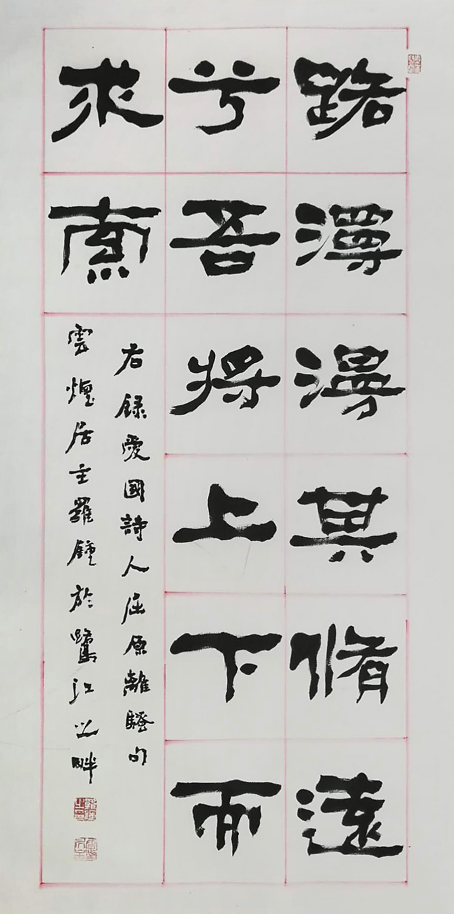 路漫漫其脩遠
兮吾將上下而
求索
右錄愛國詩人屈原離騷句
雲居主羅鍾於鷺江之畔